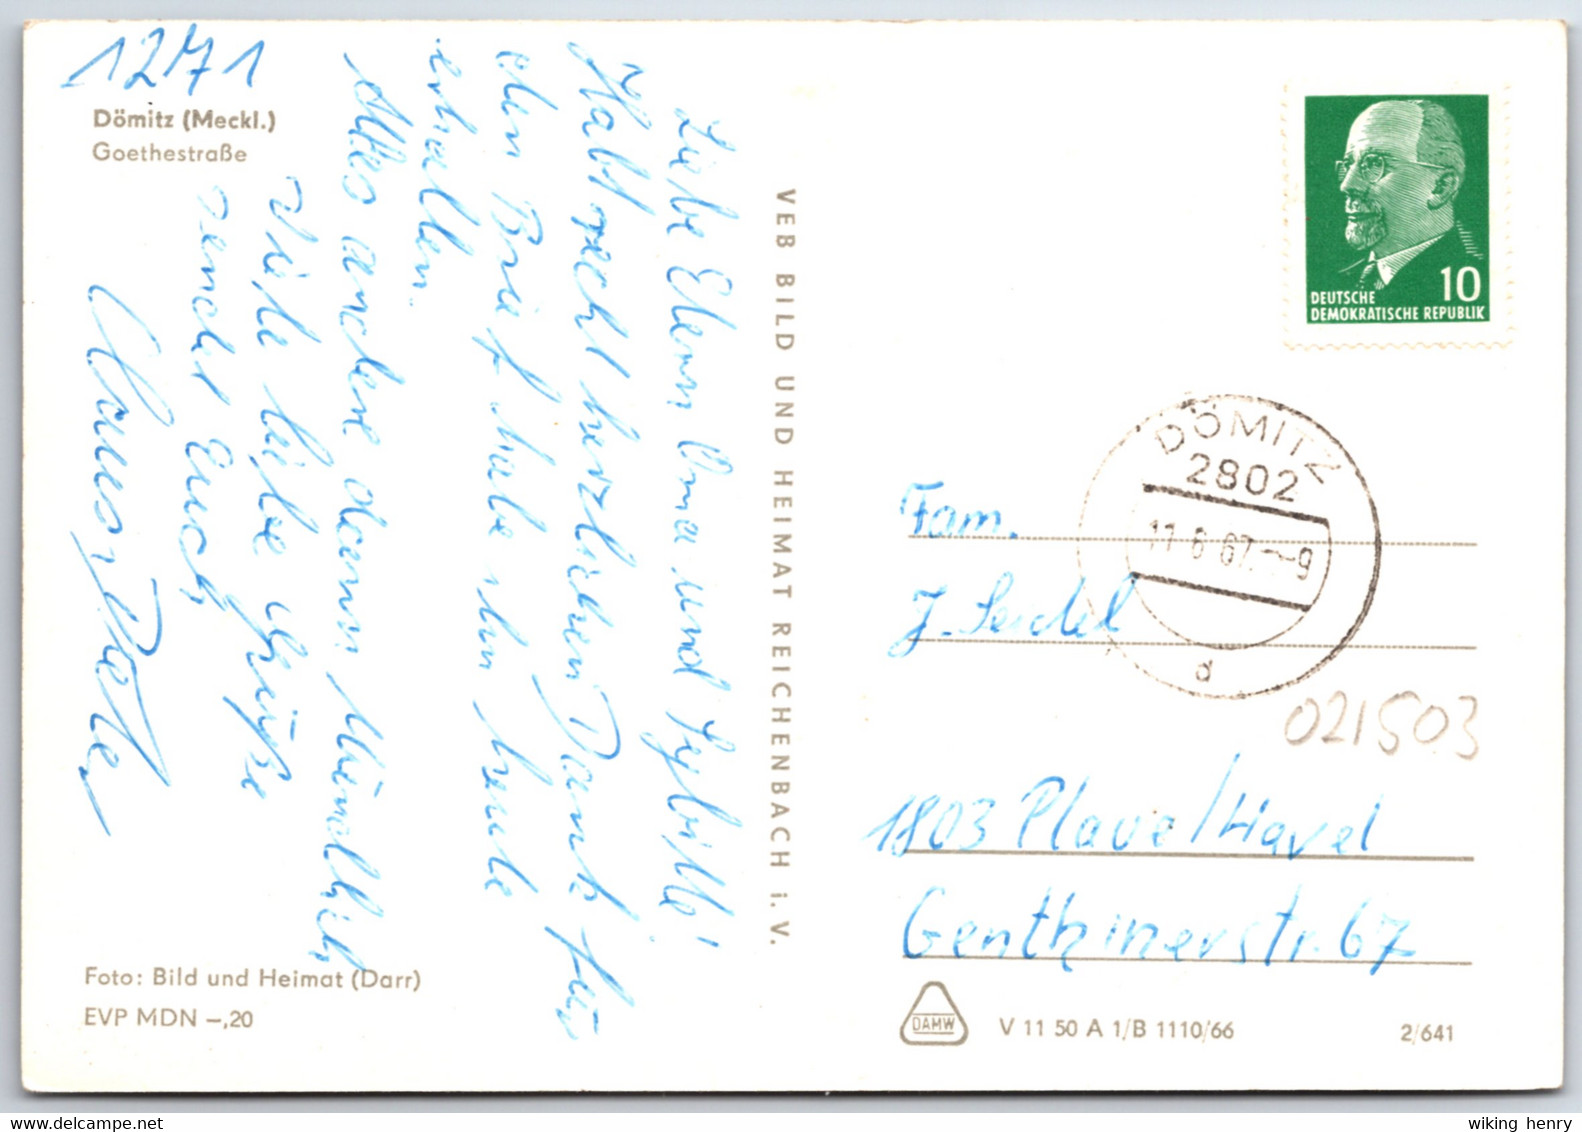 1271
Dömitz (Meckl.)
Goethestraße
Liebe Eltern Oma und Sybille!
Habt recht herzlichen Dank für
den Brief habe ihn heute
erhalten.
Alles andere dann Mündlich
Viele liebe Grüße
sendet Euch
Claus Peter
Foto: Bild und Heimat (Darr)
EVP MDN –,20
VEB BILD UND HEIMAT REICHENBACH i. V.
10
DEUTSCHE
DEMOKRATISCHE REPUBLIK
DÖMITZ
2802
11.6.67.-9
d
Fam.
J. Seidel
021503
1803 Plaue/Havel
Genthinerstr. 67
DAMW
V 11 50 A 1/B 1110/66
2/641
wiking henry